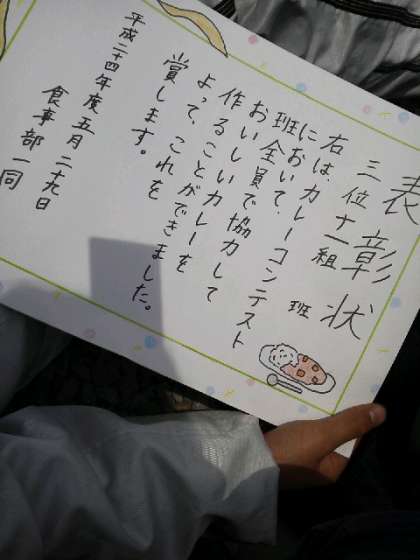 表彰状
三位十一組 班
右は、カレーコンテスト
において、
班全員で協力して
おいしいカレーを
作ることができました。
よって、これを
賞します。
平成二十四年度五月二十九日
食事部一同